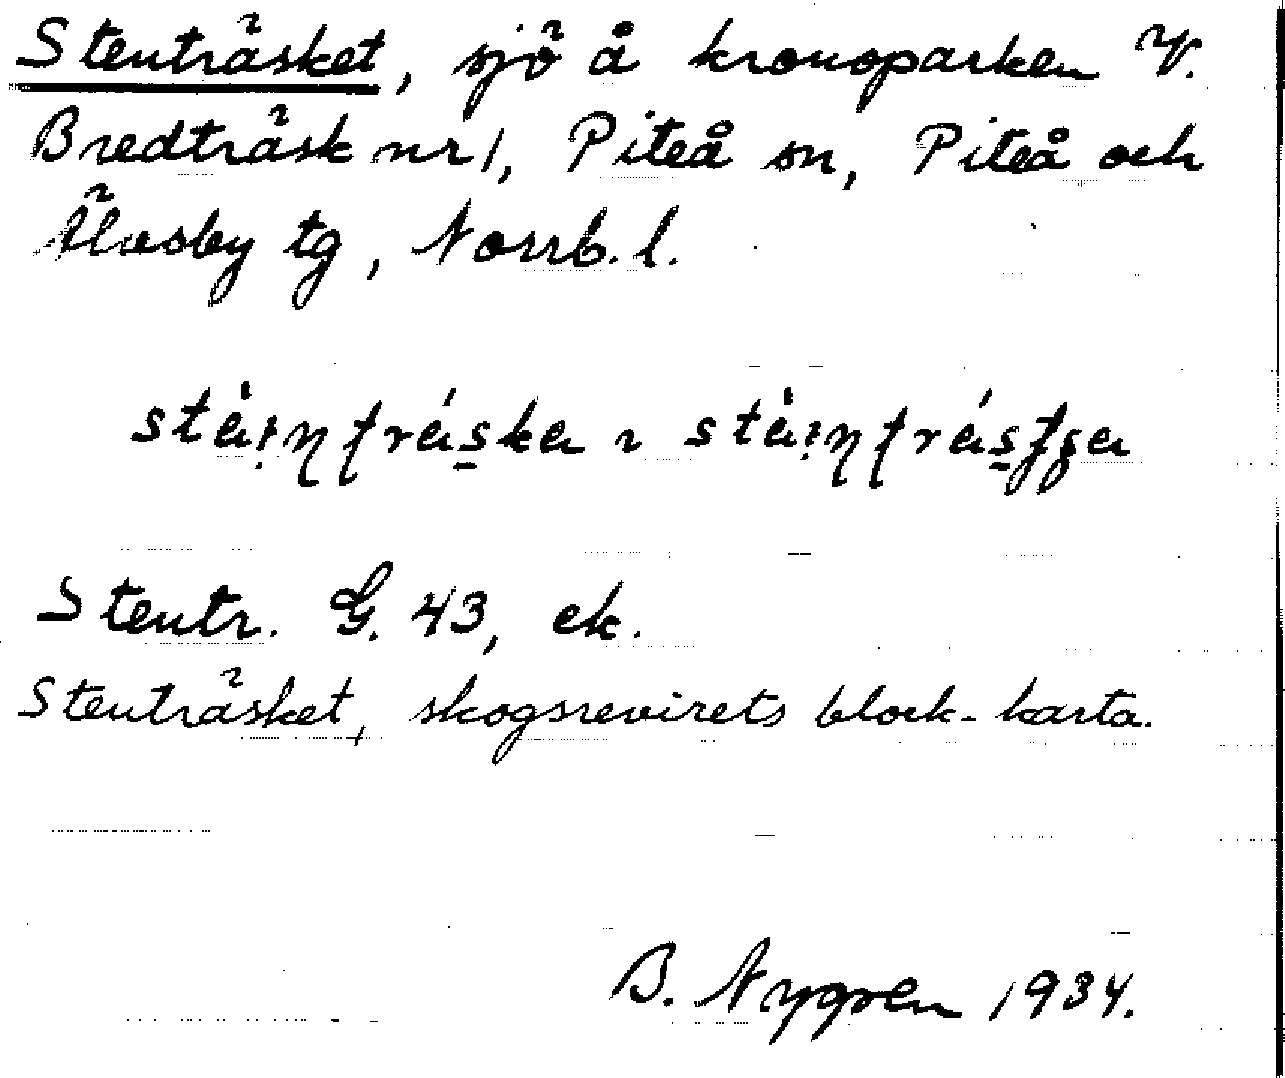 Stenträsket, sjö å kronoparken V.
Bredträsk nr 1, Piteå sn, Piteå och
Älvsby tg, Norrb. l.
Stentr. G. 43, ek.
Stenträsket, skogsrevirets block-karta.
B. Nygren 1934.